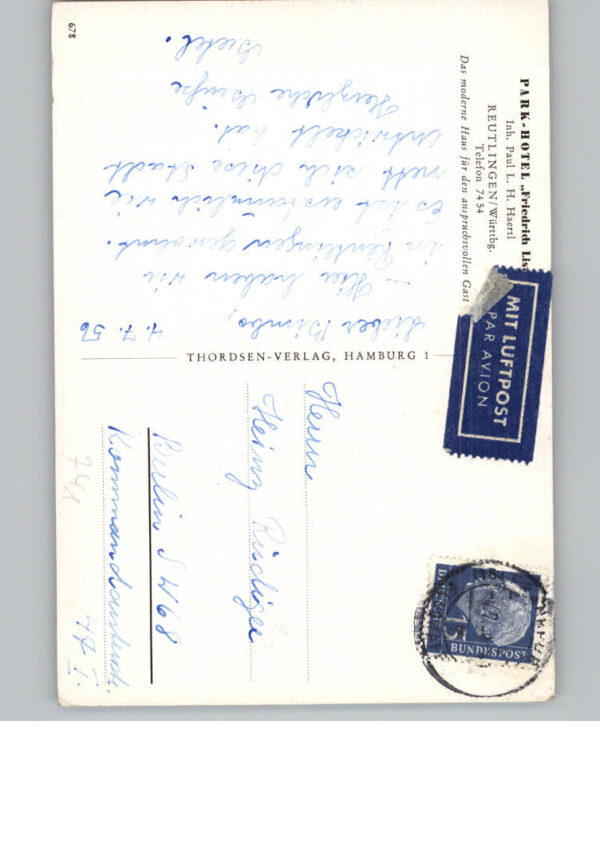 PARK-HOTEL „Friedrich Lis
Inh. Paul L. H. Haertl
REUTLINGEN/Württbg.
Telefon 7454
Das moderne Haus für den anspruchsvollen Gast
4.7.56
Lieber Bimbo,
Hier haben wir
in Reutlingen gewohnt.
Es ist erstaunlich wie
nett sich diese Stadt
entwickelt hat.
Herzliche Grüße
678
THORDSEN-VERLAG, HAMBURG 1
MIT LUFTPOST
PAR AVION
15
BUNDESPOST
Herrn
Heinz Rüdiger
Berlin SW 68
Kommandantenstr.
47 I.
741